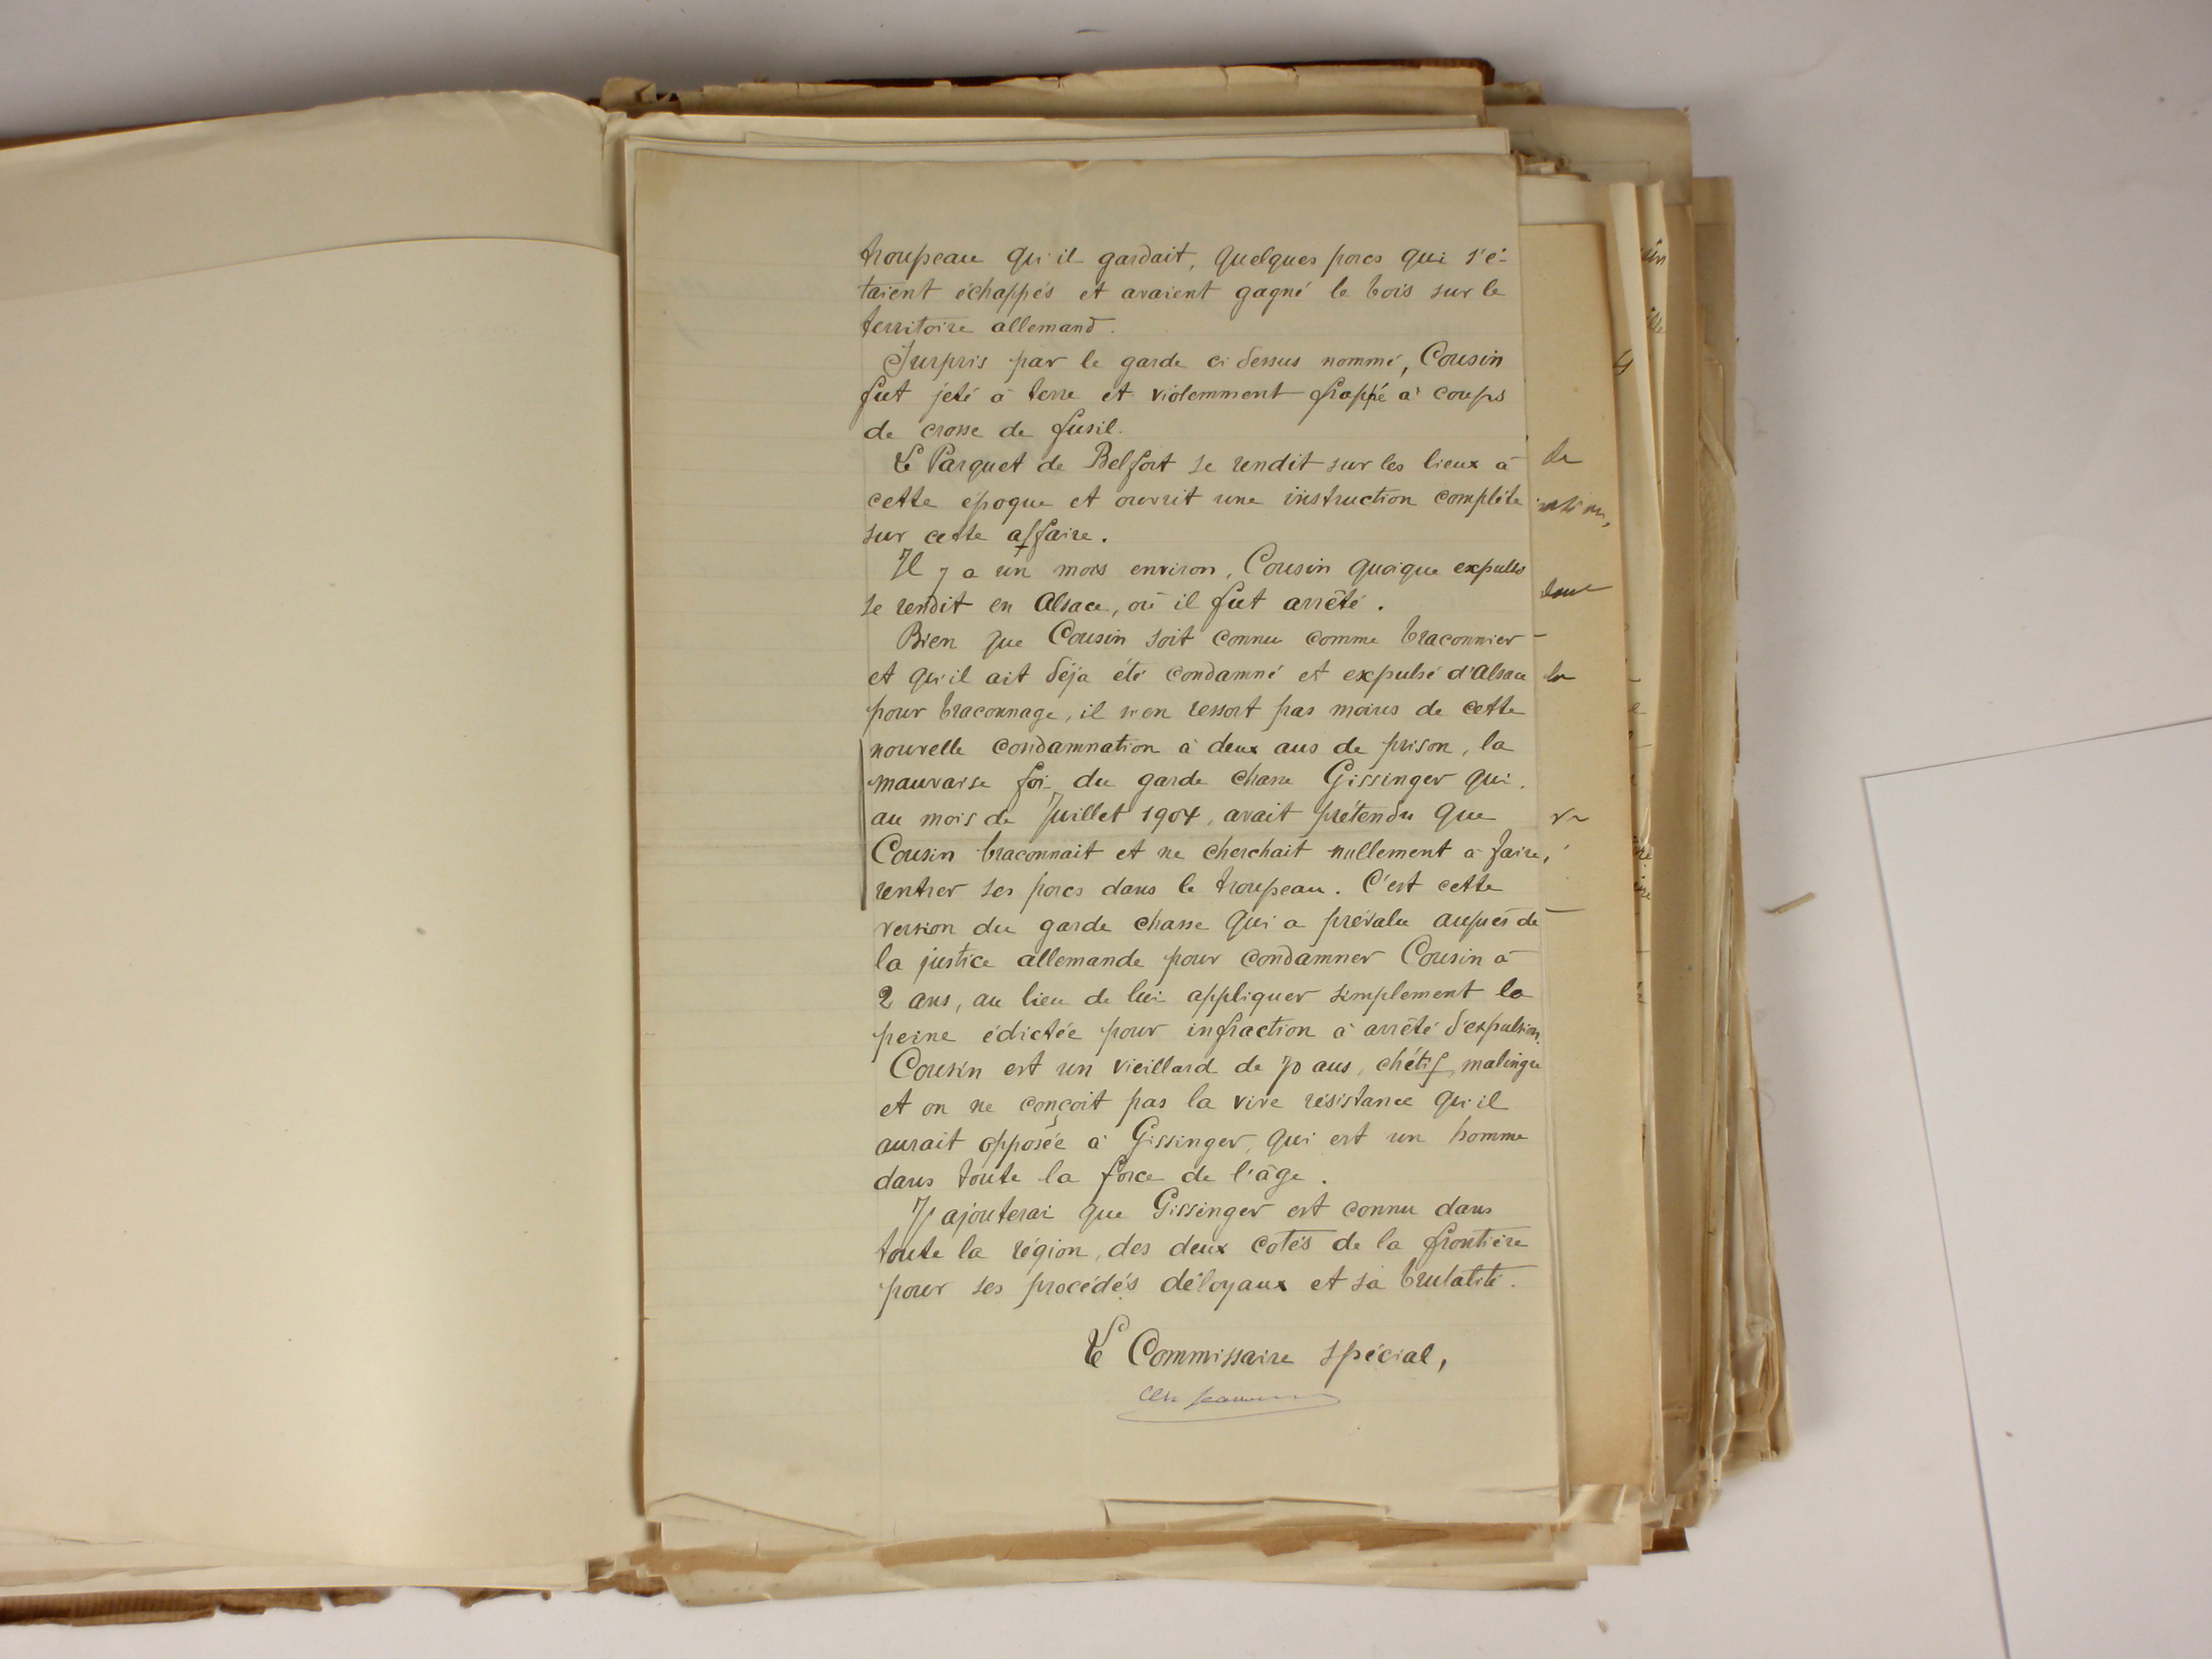 troupeau qu'il gardait, quelques porcs qui s'é-
taient échappés et avaient gagné le bois sur le
territoire allemand.
Surpris par le garde ci dessus nommé, Cousin
fut jeté à terre et violemment frappé à coups
de crosse de fusil.
Le Parquet de Belfort se rendit sur les lieux à
cette époque et ouvrit une instruction complète
sur cette affaire.
Il y a un mois environ, Cousin quoique expulsé
se rendit en Alsace, où il fut arrêté.
Bien que Cousin soit connu comme braconnier
et qu'il ait déja été condamné et expulsé d'Alsace
pour braconnage, il n'en ressort pas moins de cette
nouvelle condamnation à deux ans de prison, la
mauvaise foi du garde chasse Gissinger qui,
au mois de Juillet 1904, avait prétendu que
Cousin braconnait et ne cherchait nullement à faire
rentrer ses porcs dans le troupeau. C'est cette
version du garde chasse qui a prévalu auprès de
la justice allemande pour condamner Cousin à
2 ans, au lieu de lui appliquer simplement la
peine édictée pour infraction à arrêté d'expulsion.
Cousin est un vieillard de 70 ans, chétif, malingre
et on ne conçoit pas la vive résistance qu'il
aurait opposée à Gissinger, qui est un homme
dans toute la force de l'âge.
J'ajouterai que Gissinger est connu dans
toute la région, des deux cotés de la frontière
pour ses procédés déloyaux et sa brutalité.
Le Commissaire spécial,